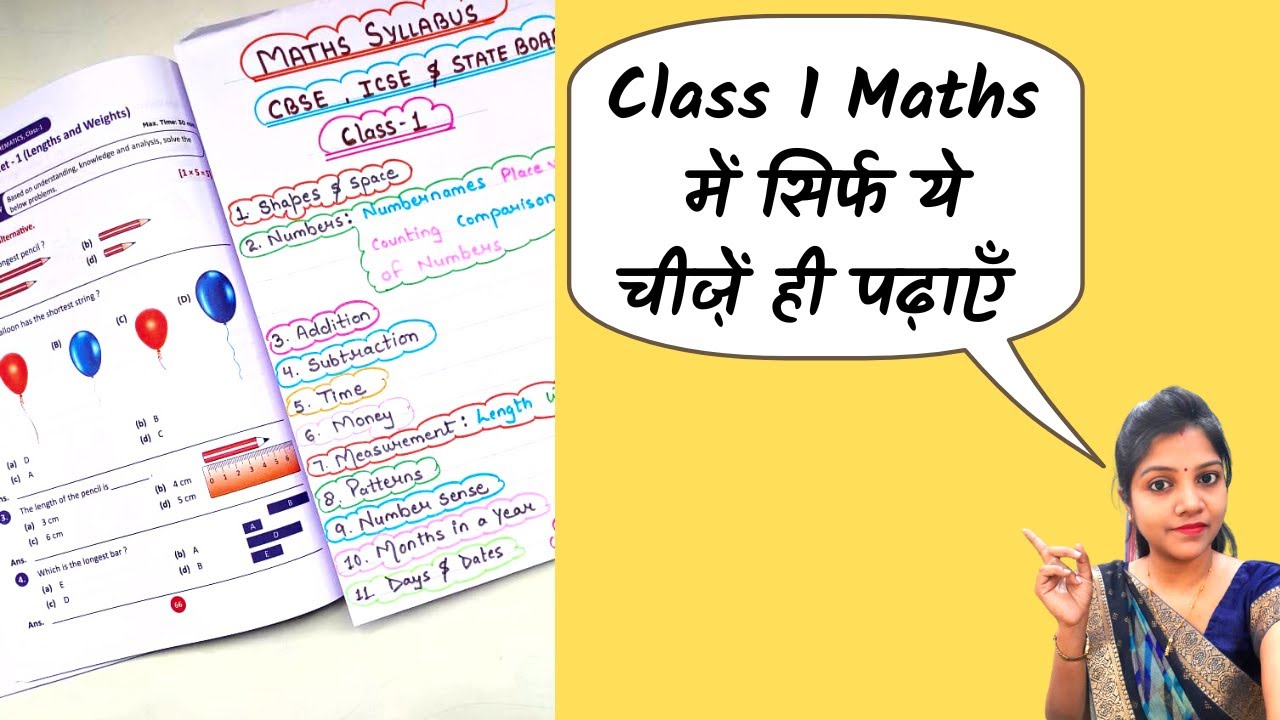 MATHEMATICS, Class-1
et - 1 (Lengths and Weights)
Max. Time: 30
Based on understanding, knowledge and analysis, solve the
below problems.
[1 × 5 = 5]
lternative.
ongest pencil ?
(b)
(d)
alloon has the shortest string ?
(B)
(C)
(D)
(a) D
(b) B
(c) A
(d) C
ns.
3. The length of the pencil is
(a) 3 cm
(b) 4 cm
(c) 6 cm
(d) 5 cm
0 1 2 3 4 5 6
Ans.
4. Which is the longest bar ?
(a) E
(b) A
(c) D
(d) B
A
B
D
E
Ans.
66
MATHS SYLLABUS
CBSE , ICSE & STATE BOAR
Class-1
1. Shapes & Space
2. Numbers: Numbernames Place
Counting Comparison
of Numbers
3. Addition
4. Subtraction
5. Time
6. Money
7. Measurement: Length
8. Patterns
9. Number Sense
10. Months in a Year
11. Days & Dates
Class 1 Maths
में सिर्फ ये
चीज़ें ही पढ़ाएँ